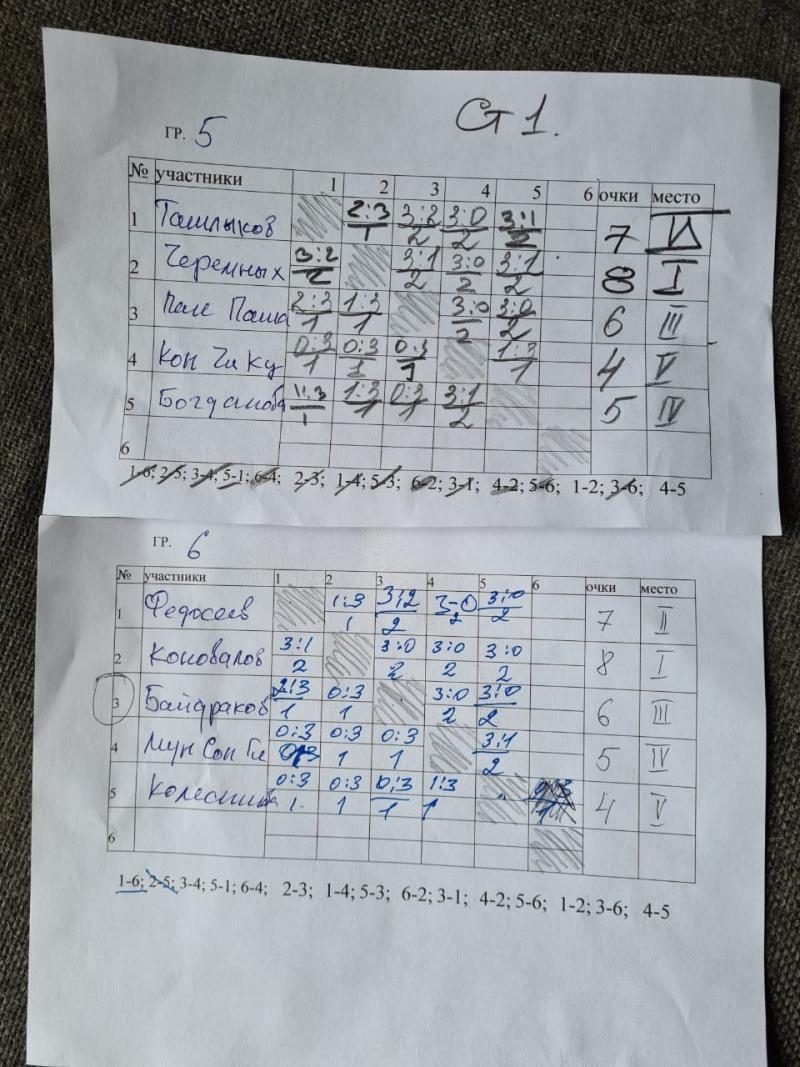 Ст 1.
ГР. 5
№ участники 1 2 3 4 5 6 очки место
1 Ташлыков 2:3/1 3:2/2 3:0/2 3:1/2 7 II
2 Черемных 3:2/2 3:1/2 3:0/2 3:1/2 8 I
3 Пак Паша 2:3/1 1:3/1 3:0/2 3:0/2 6 III
4 Кон Чи Ку 0:3/1 0:3/1 0:3/1 1:3/1 4 V
5 Богданова 1:3/1 1:3/1 0:3/1 3:1/2 5 IV
6
1-6; 2-5; 3-4; 5-1; 6-4; 2-3; 1-4; 5-3; 6-2; 3-1; 4-2; 5-6; 1-2; 3-6; 4-5
ГР. 6
№ участники 1 2 3 4 5 6 очки место
1 Федосеев 1:3/1 3:2/2 3-0/2 3:0/2 7 II
2 Коновалов 3:1/2 3:0/2 3:0/2 3:0/2 8 I
3 Байдраков 2:3/1 0:3/1 3:0/2 3:0/2 6 III
4 Мун Сон Ги 0:3 0:3/1 0:3/1 3:1/2 5 IV
5 0:3/1 0:3/1 0:3/1 1:3/1 4 V
6
1-6; 2-5; 3-4; 5-1; 6-4; 2-3; 1-4; 5-3; 6-2; 3-1; 4-2; 5-6; 1-2; 3-6; 4-5